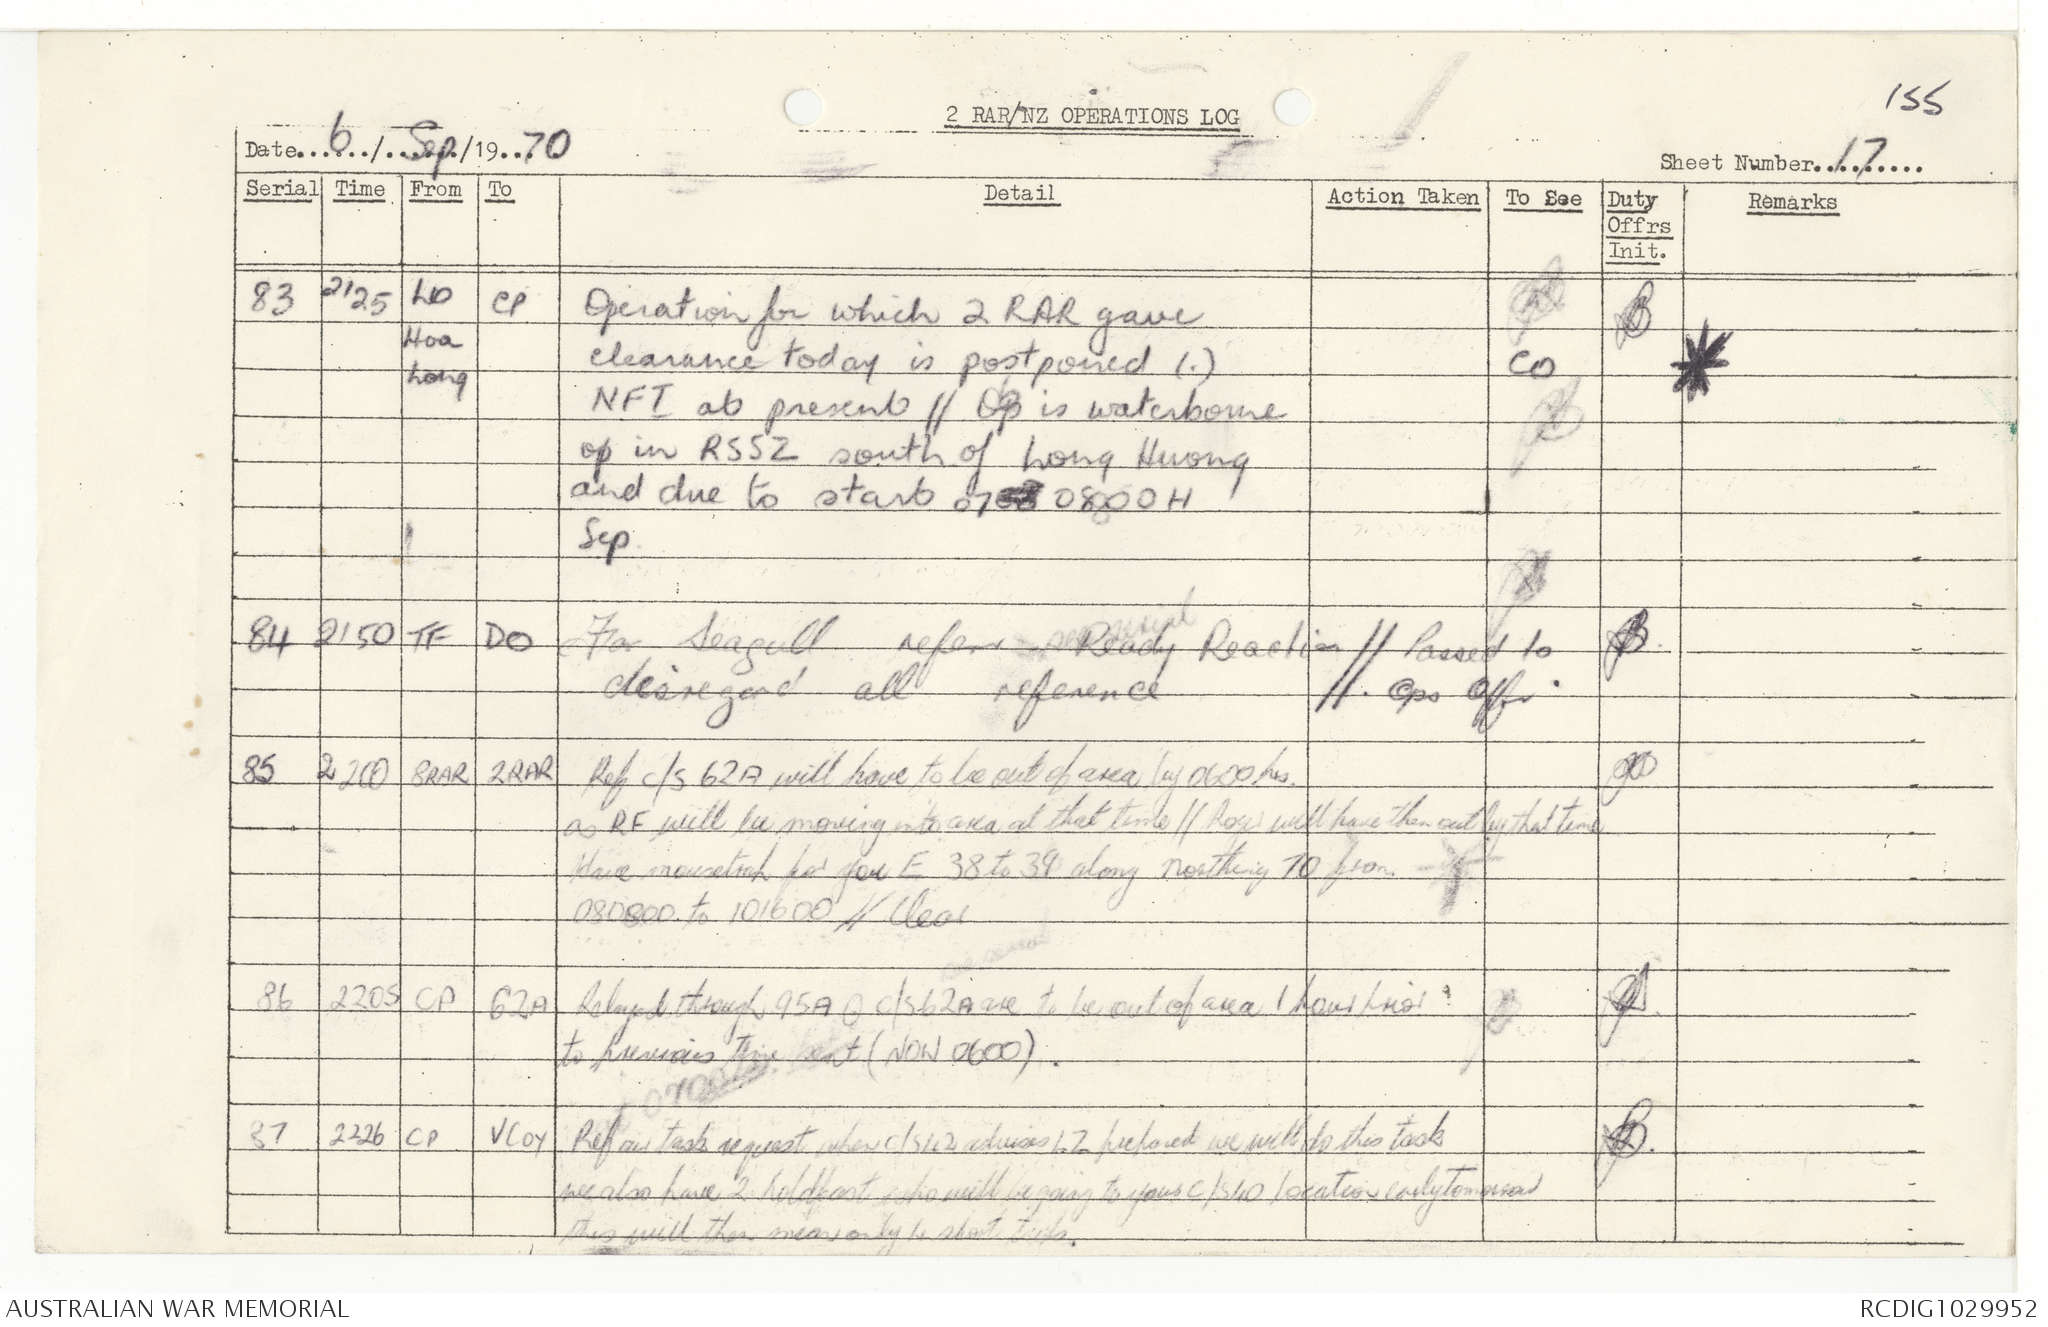 155
2 RAR/NZ OPERATIONS LOG
Date 6 / Sep /19 70
Sheet Number 17
Serial Time From To Detail Action Taken To See Duty Offrs Init. Remarks
83 2125 LO CP Operation for which 2 RAR gave
Hoa clearance today is postponed (.) CO
Long NFI at present // Op is waterborne
op in RSSZ south of Long Huong
and due to start 07 0800H
Sep.
84 2150 TF DO For Seagull refer Ready Reaction // Passed to
disregard all reference //. Ops Offr.
85 2200 8RAR 2RAR Ref c/s 62A will have to be out of area by 0600 hrs.
as RF will be moving into area at that time // Rog will have them out by that time
Have mousetrap for you E 38 to 39 along Northing 70 from
080800 to 101600 // Clear
86 2205 CP 62A Relayed through 95A c/s 62A are to be out of area 1 hour prior
to previous time sent (NOW 0600).
0700
87 2226 CP VCoy Ref our task request when c/s advises LZ prepared we will do this task
we also have 2 holdfast who will be going to your c/s 40 location early tomorrow
this will then mean only short task.
AUSTRALIAN WAR MEMORIAL
RCDIG1029952